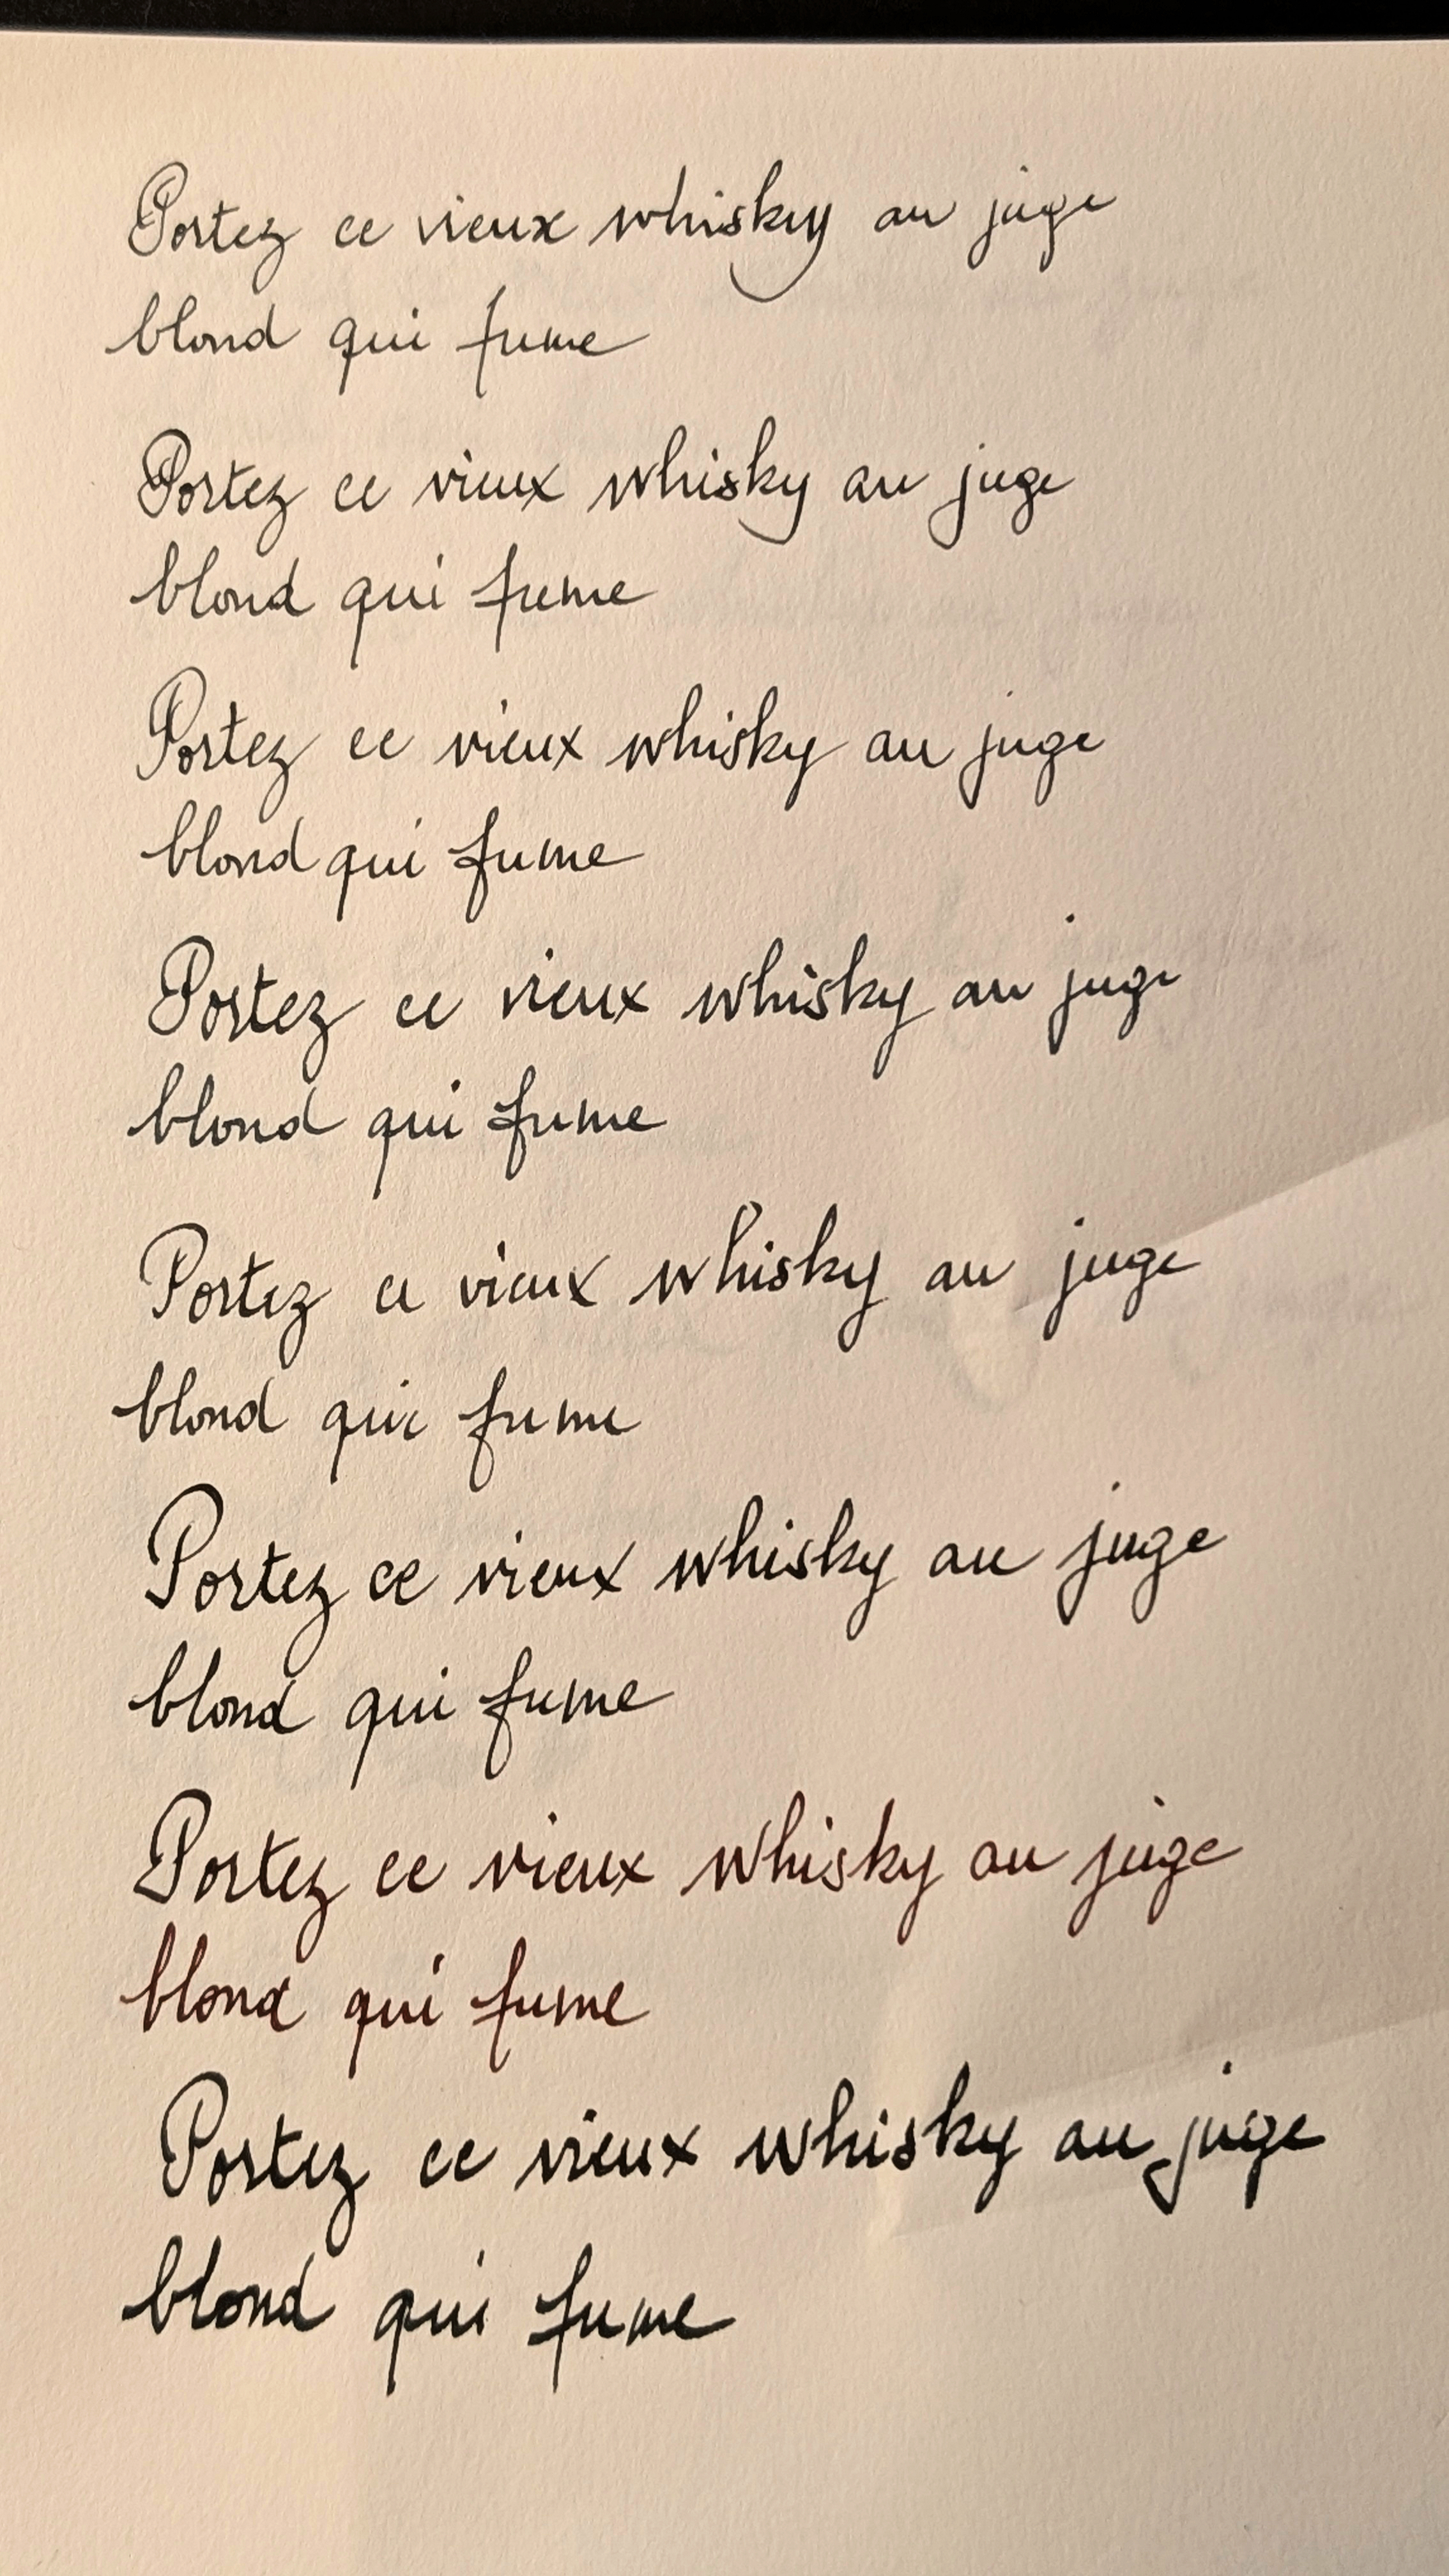 Portez ce vieux whisky au juge
blond qui fume
Portez ce vieux whisky au juge
blond qui fume
Portez ce vieux whisky au juge
blond qui fume
Portez ce vieux whisky au juge
blond qui fume
Portez ce vieux whisky au juge
blond qui fume
Portez ce vieux whisky au juge
blond qui fume
Portez ce vieux whisky au juge
blond qui fume
Portez ce vieux whisky au juge
blond qui fume